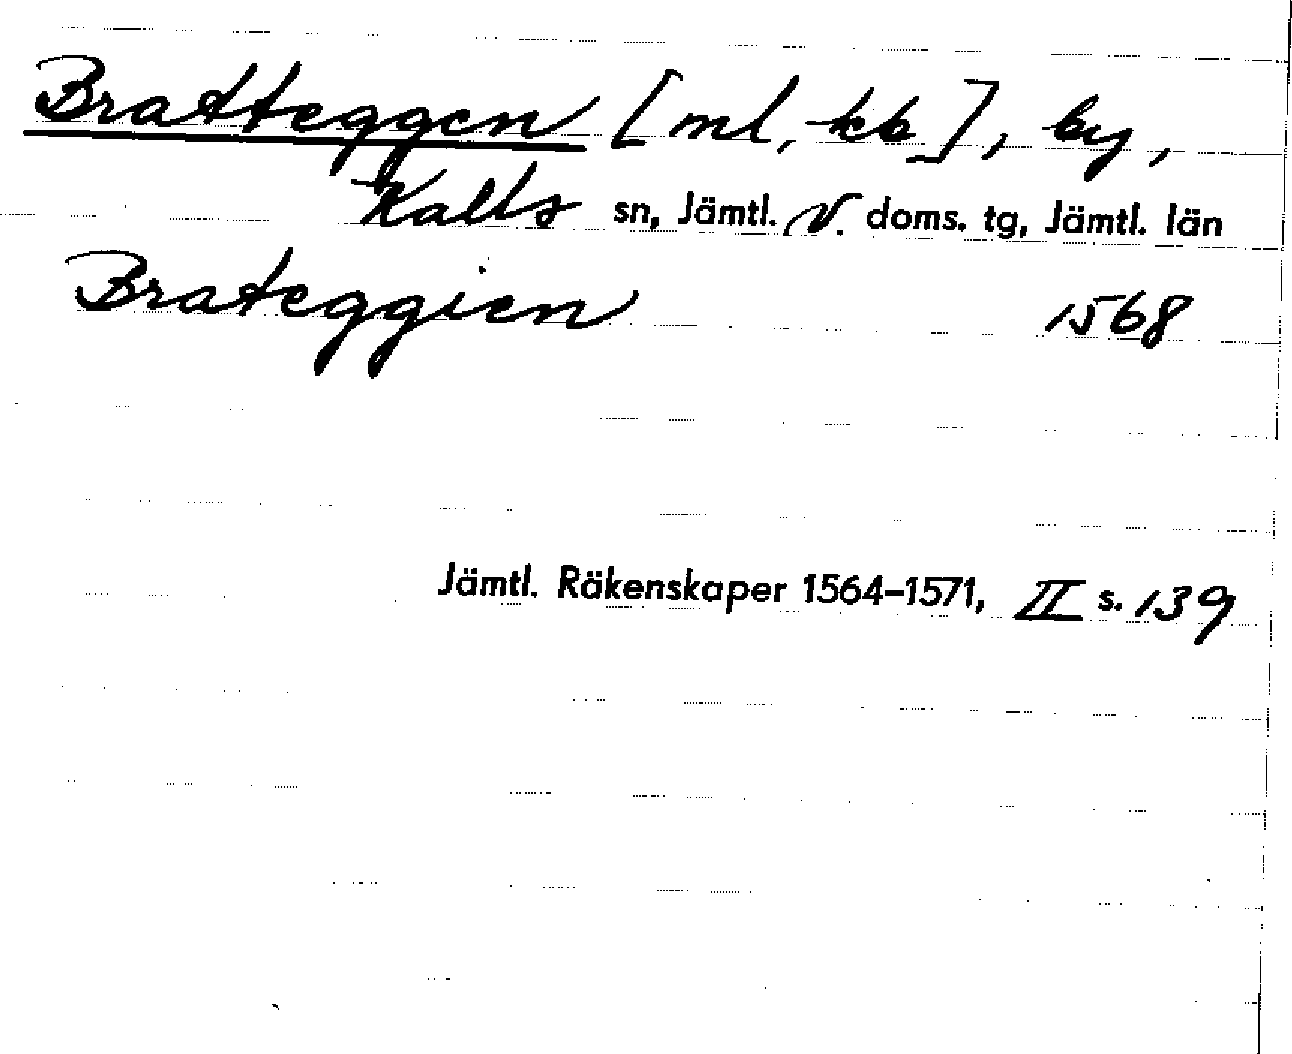 Bratteggen [ml, kb], by,
Kalls sn, Jämtl. V. doms. tg, Jämtl. län
Brateggien 1568
Jämtl. Räkenskaper 1564–1571, II s. 139